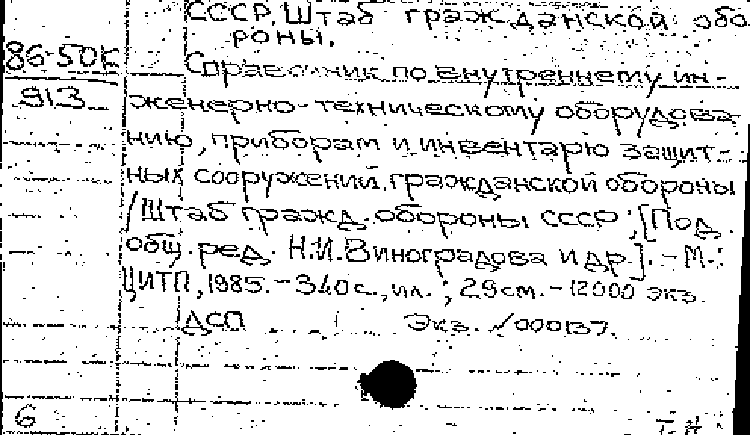 СССР. Штаб гражданской обо
роны.
86-50К
Справочник по внутреннему ин-
913
женерно-техническому оборудова
нию, приборам и инвентарю защит-
ных сооружений гражданской обороны
/Штаб гражд. обороны СССР; [Под.
общ. ред. Н.И. Виноградова и др.]. - М.:
ЦИТП, 1985. - 340 с., ил.; 29 см. - 12000 экз.
ДСП Экз. №000137.
6
Т. Н